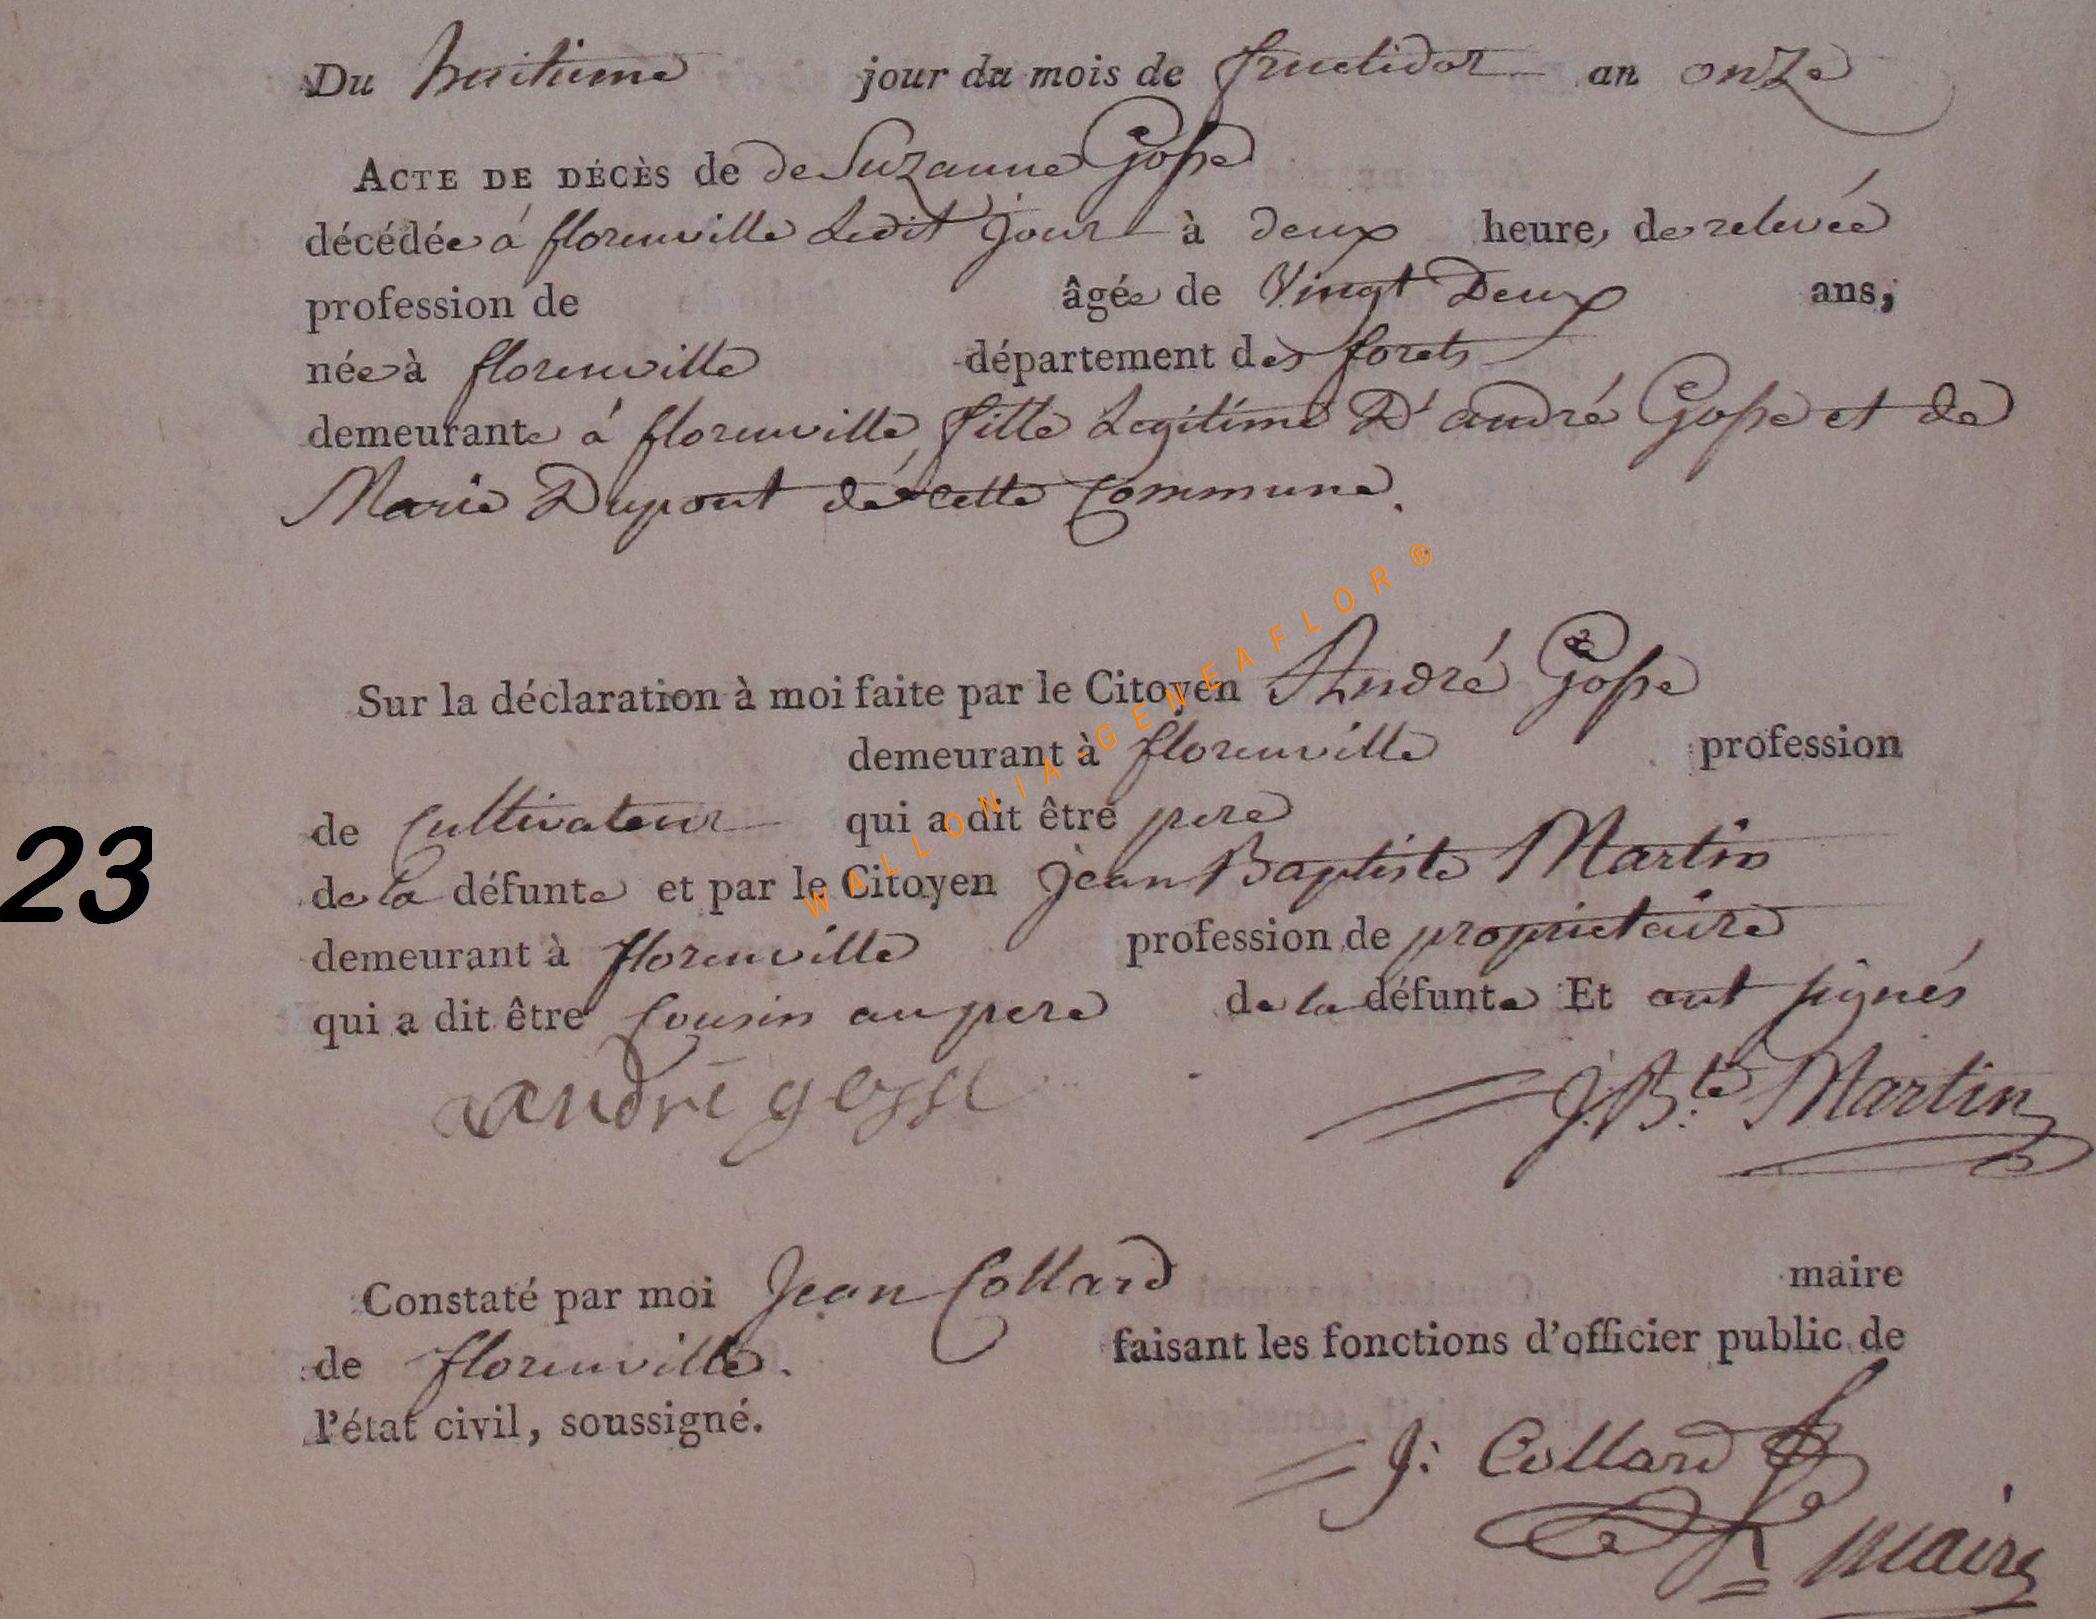 Du huitieme jour du mois de fructidor an onze
ACTE DE DÉCÈS de de Suzanne Gosse
décédée á florenville Ledit jour à deux heure, de relevée
profession de âgée de Vingt Deux ans,
née à florenville département des forets
demeurante á florenville fille Legitime D'andré Gosse et de
Marie Dupont de cette Commune.
Sur la déclaration à moi faite par le Citoyen André Gosse
demeurant à florenville profession
de Cultivateur qui a dit être pere
de la défunte et par le Citoyen Jean Baptiste Martin
demeurant à florenville profession de proprietaire
qui a dit être Cousin au pere de la défunte Et ont signés
andré gosse J. B.te Martin
Constaté par moi Jean Collard maire
de florenville. faisant les fonctions d'officier public de
l'état civil, soussigné.
J: Collard
maire
23
WALLONIA GENEAFLOR ®